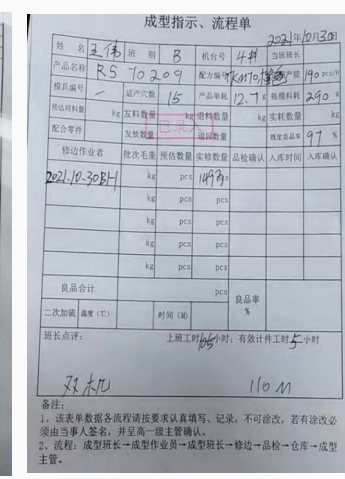 成型指示、流程单
2021年10月30日
姓 名 王伟 班 别 B 机台号 4# 当班班长
产品名称 RS 70209 配方编号 产能 190 pcs/H
模具编号 一 适产穴数 15 产品单耗 12.7 g 每模料耗 290 g
预估用料量 kg 发料数量 kg 退料数量 kg 实耗数量 kg
配合零件 发放数量 退回数量 既定良品率 97 %
修边作业者 批次毛重 预估数量 实修数量 品检确认 入库时间 入库确认
2021.10.30BH kg pcs pcs
kg pcs pcs
kg pcs pcs
kg pcs pcs
kg pcs pcs
良品合计 pcs 良品率 %
二次加硫 温度(℃) 时间(M)
班长点评: 上班工时 小时; 有效计件工时 5 小时
双机 110M
备注:
1、该表单数据各流程请按要求认真填写、记录,不可涂改,若有涂改必
须由当事人签名,并呈高一级主管确认。
2、流程:成型班长→成型作业员→成型班长→修边→品检→仓库→成型
主管。